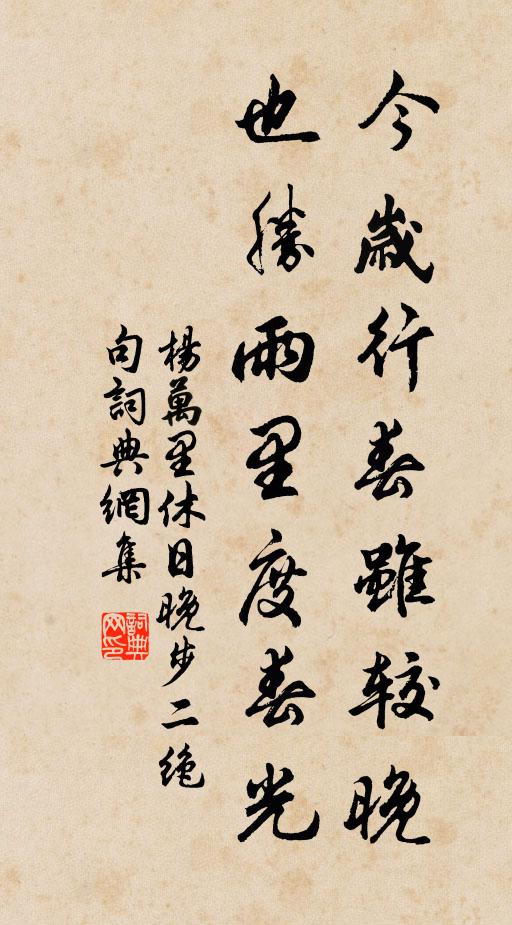 今歲行春雖較晚
也勝雨里度春光
楊萬里休日晚步二絕
句詞典網集
詞典网印